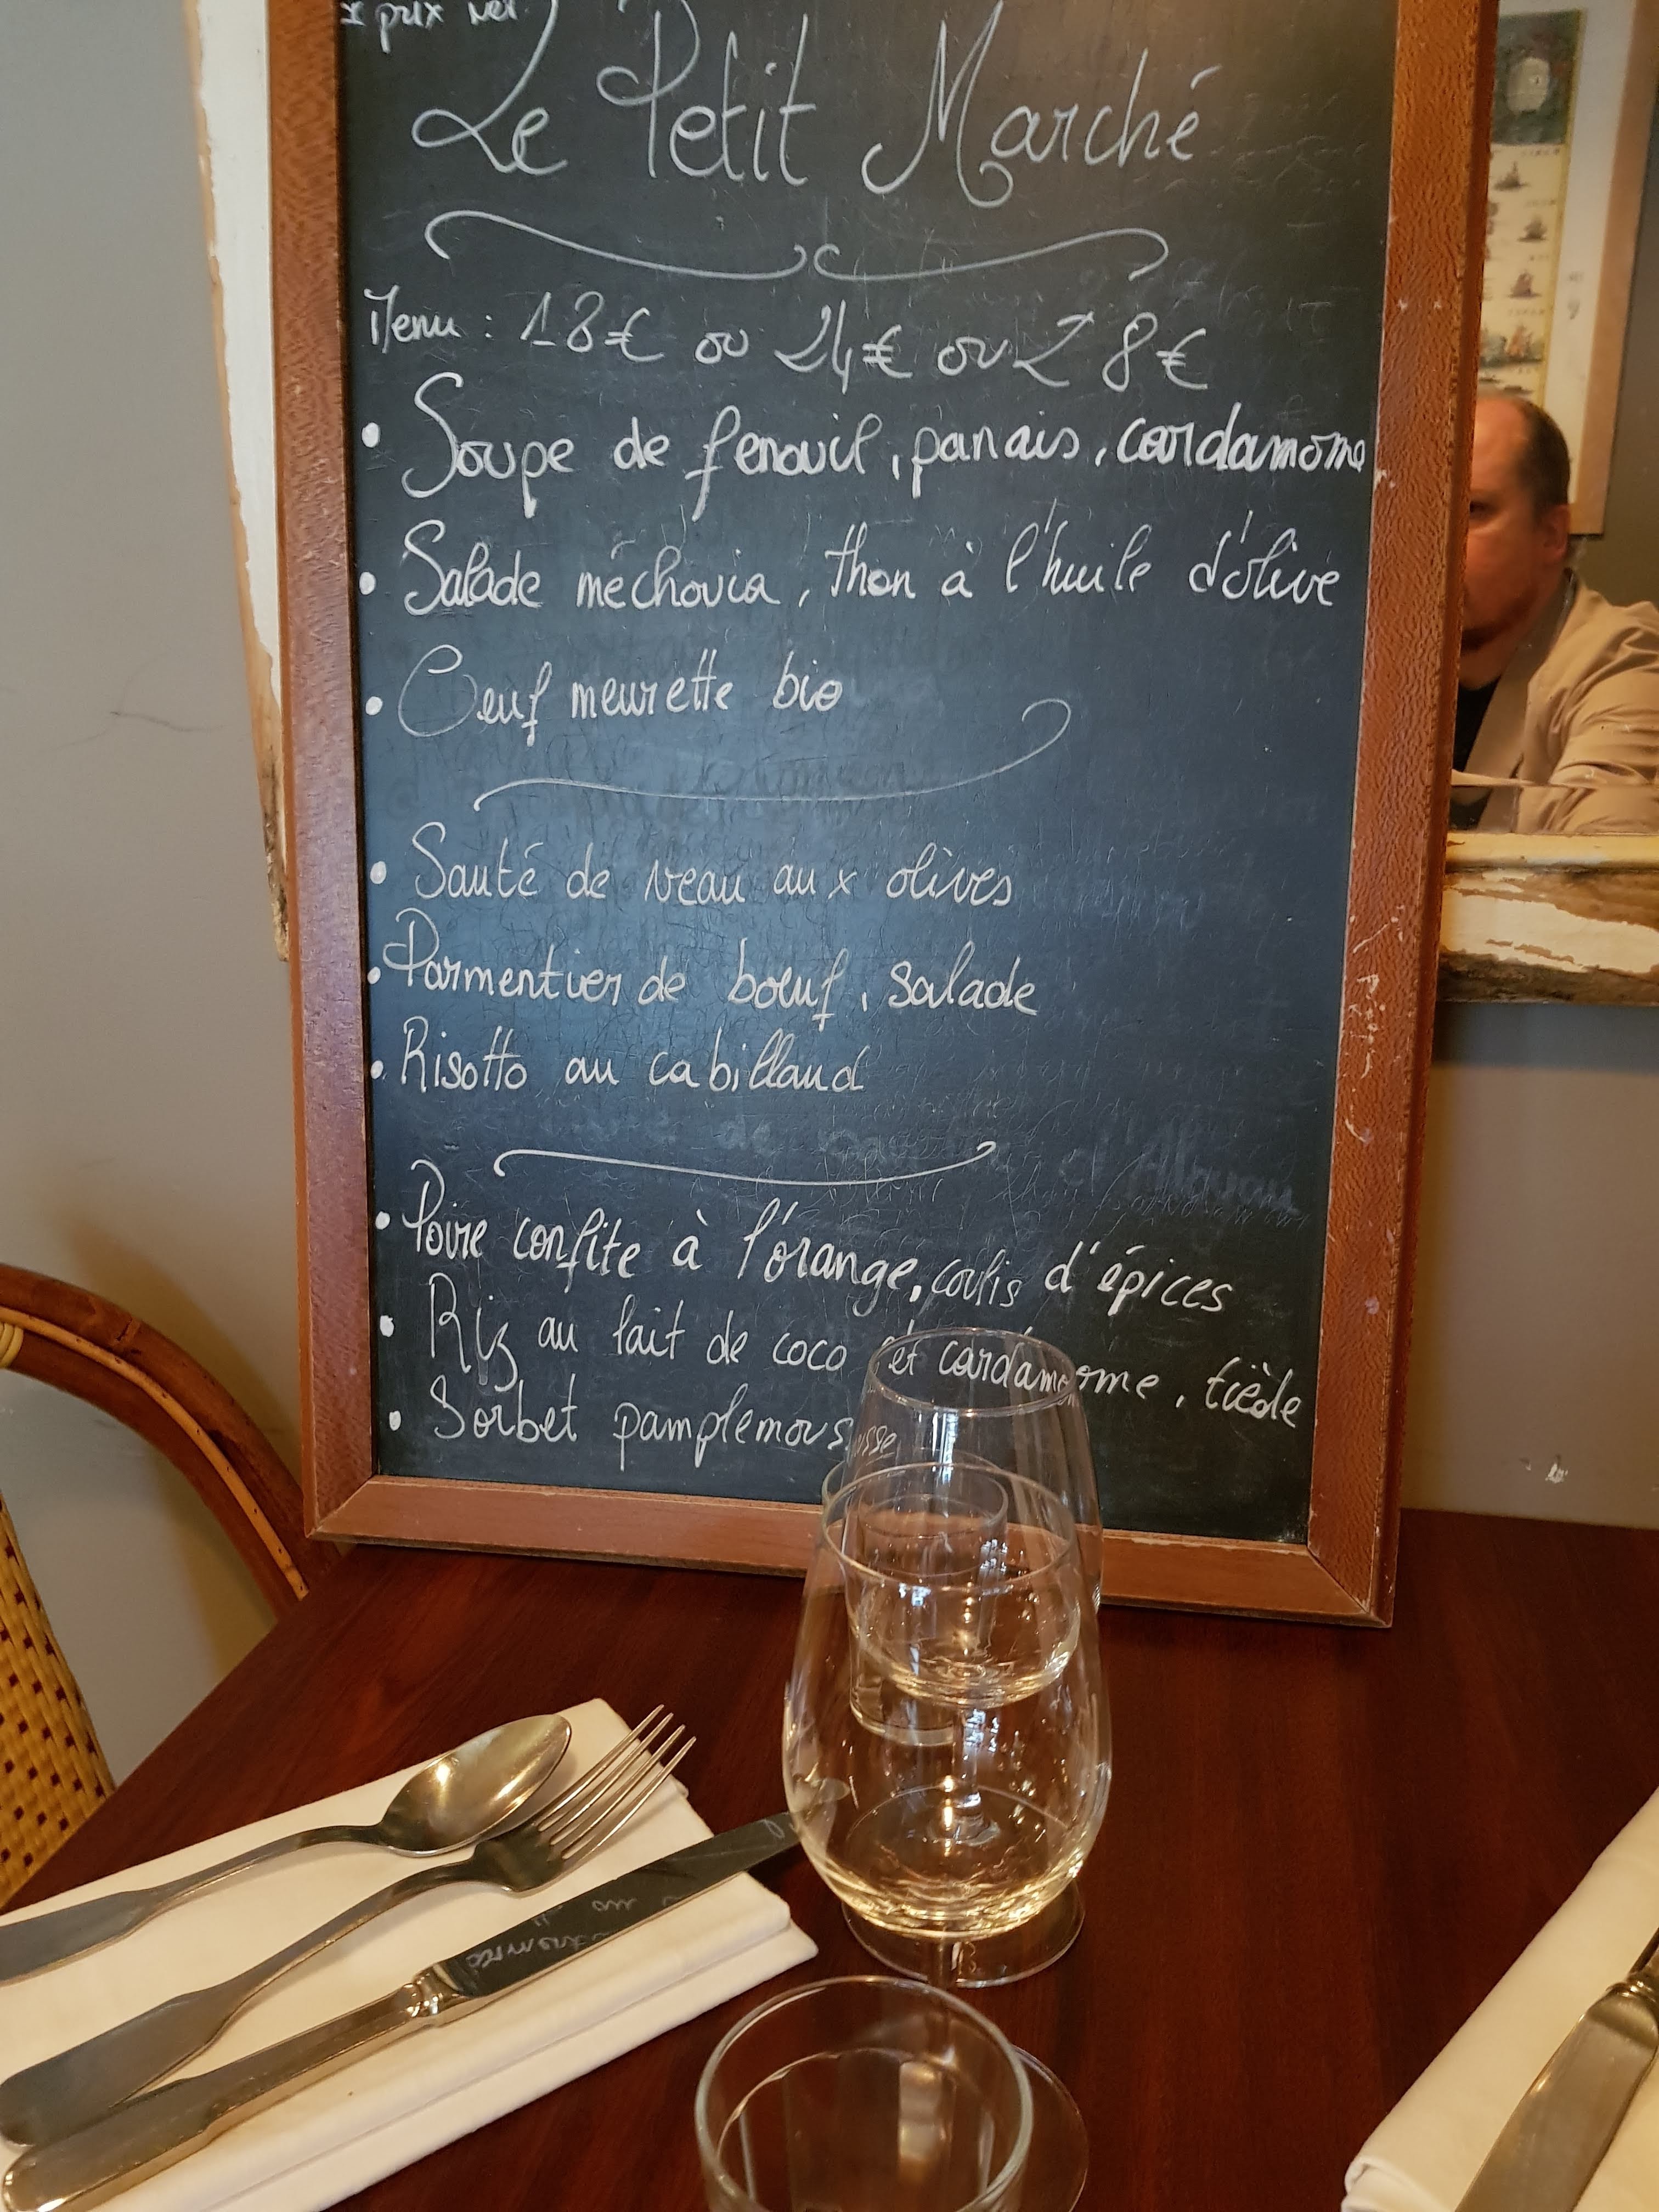 x prix net
Le Petit Marché
Menu : 18€ ou 24€ ou 28€
• Soupe de fenouil, panais, cardamome
• Salade méchouia, thon à l'huile d'olive
• Oeuf meurette bio
• Sauté de veau aux olives
• Parmentier de boeuf, salade
• Risotto au cabillaud
• Poire confite à l'orange, coulis d'épices
• Riz au lait de coco et cardamome, tiède
• Sorbet pamplemousse